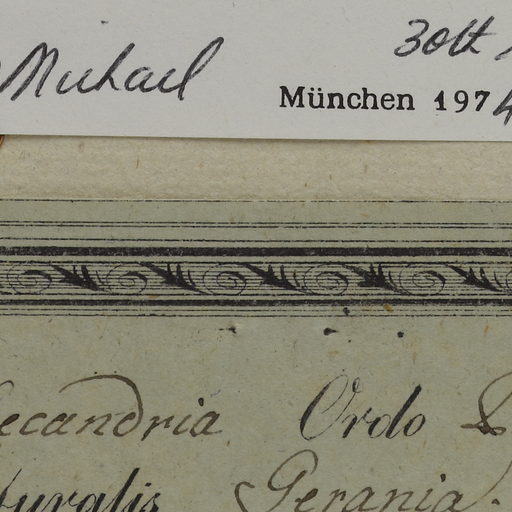 Michael
30 Okt
München 1974
ecandria Ordo
turalis Gerania.